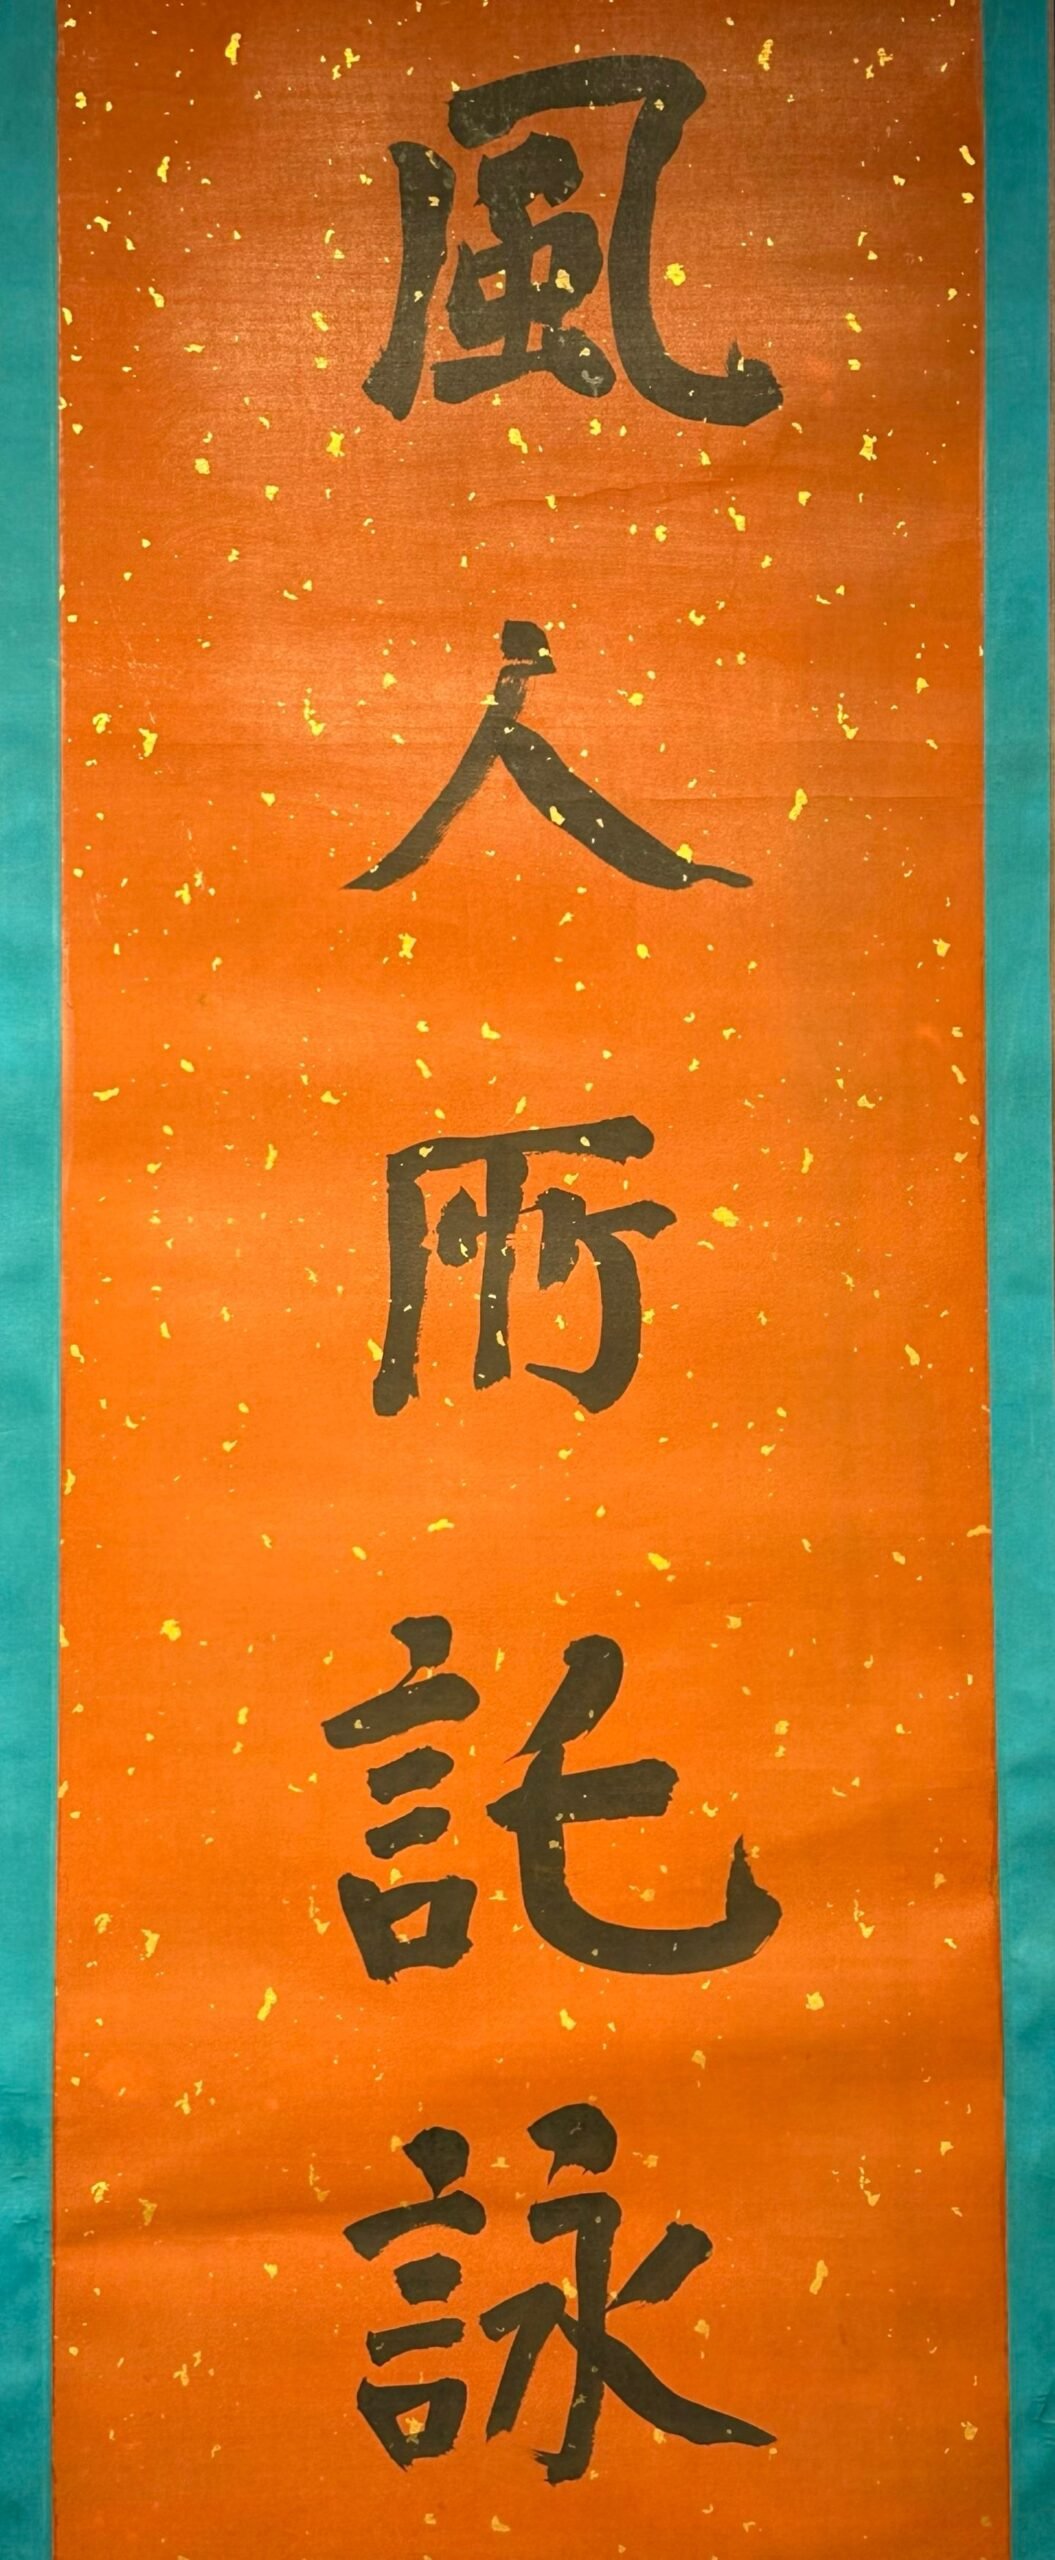 風人所託詠